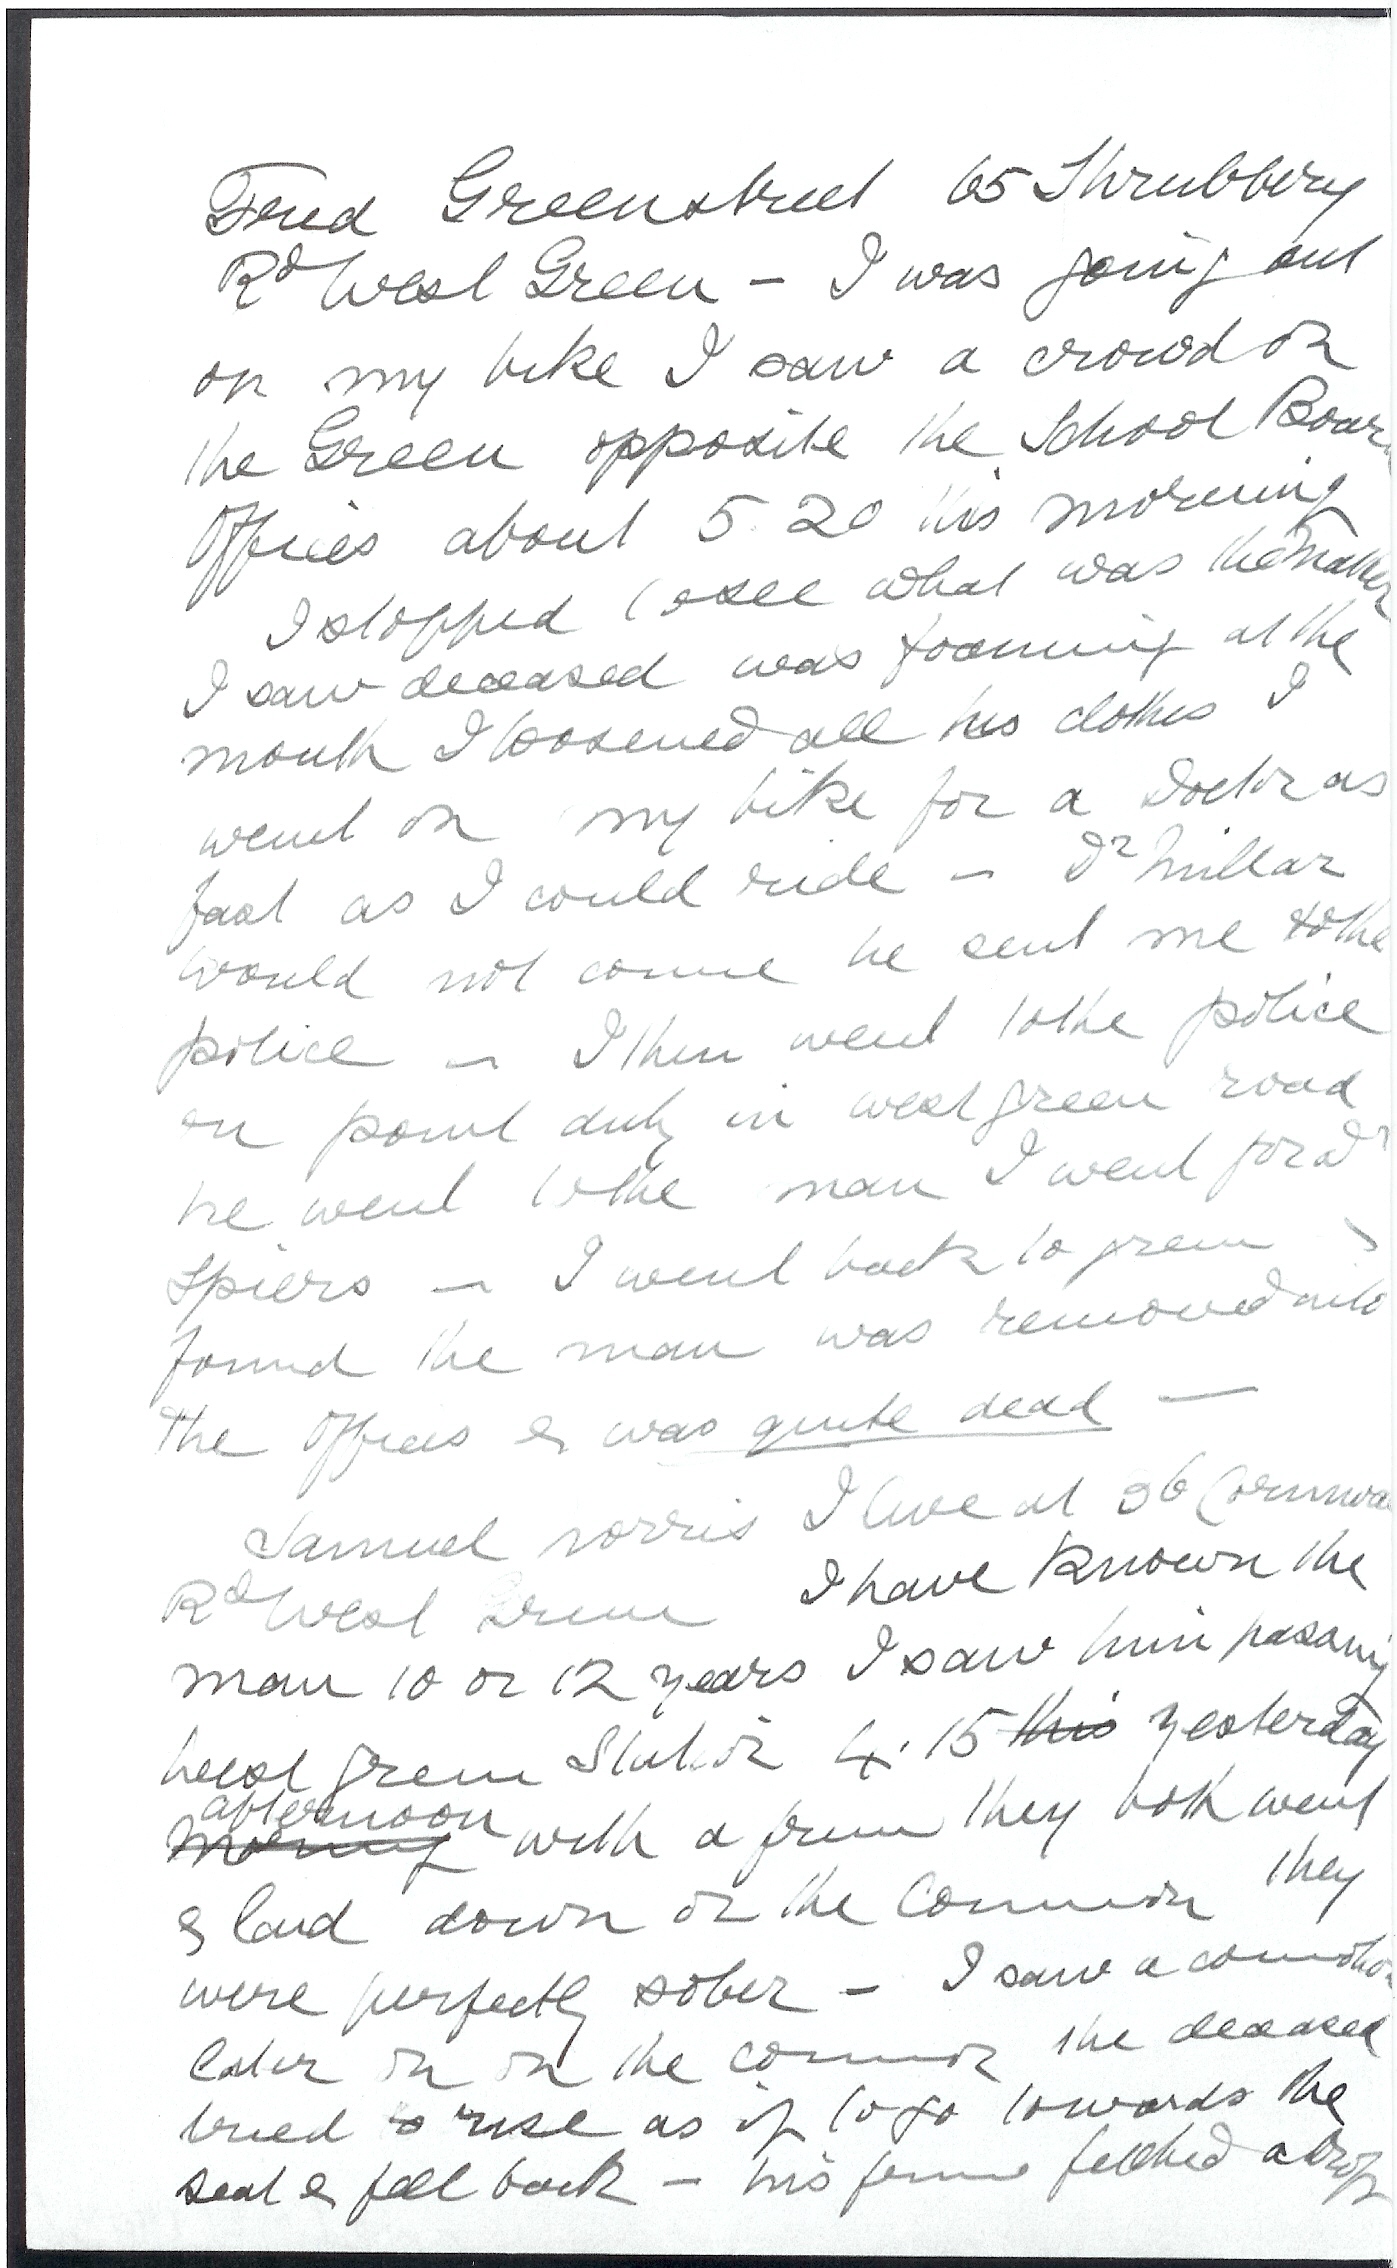 Fred Greenstreet 65 Shrubbery
Rd West Green – I was going out
on my bike I saw a crowd on
the Green opposite the School Boar
Offices about 5.20 this morning
I stopped to see what was the matter
I saw deceased was foaming at the
mouth I loosened all his clothes I
went on my bike for a Doctor as
fast as I could ride – Dr Millar
would not come he sent me to the
police – I then went to the police
on point duty in west green road
he went to the man I went for Dr
Spiers – I went back to green &
found the man was removed into
the Offices & was quite dead –
Samuel Norris I live at 36 Cornwa
Rd West Green I have known the
man 10 or 12 years I saw him passing
West green Station 4.15 this yesterday
afternoon
morning with a friend they both went
& laid down on the Common they
were perfectly sober – I saw a comotion
later on on the common the deceased
tried to rise as if to go towards the
seat & fell back – his friend fetched a drop